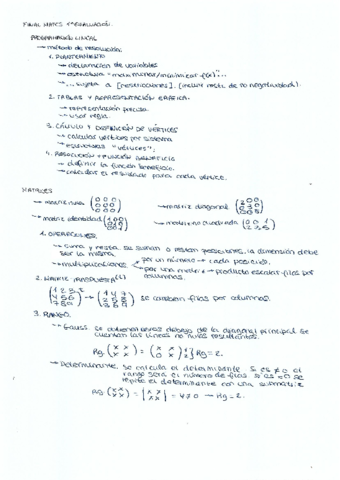 FINAL MATES 1ª EVALUACIÓN.
PROGRAMACIÓN LINEAL
→ método de resolución:
1. PLANTEAMIENTO
→ declaración de variables
→ estructura "maximizar/minimizar f(x)"...
→ ...sujeta a [restricciones]. (incluir restr. de no negatividad).
2. TABLAS Y REPRESENTACIÓN GRÁFICA.
→ representación precisa.
→ usar regla.
3. CÁLCULO Y DEFINICIÓN DE VÉRTICES
→ calcular vértices por sistema
→ "vértices";
4. RESOLUCIÓN FUNCIÓN BENEFICIO
→ definir la función beneficio.
→ calcular el resultado para cada vértice.
MATRICES
→ matriz (0 0 0 → matriz diagonal
→ matriz identidad → matriz no cuadrada
1. OPERACIONES.
→ suma y resta. se suman o restan posiciones, la dimensión debe
ser la misma.
→ multiplicaciones por un número → cada posición.
por una matriz → producto escalar filas por
columnas.
2. MATRIZ TRASPUESTA (t)
(1 2 3, 4 5 6, 7 8 9) → (1 4 7, 2 5 8, 3 6 9) se cambian filas por columnas.
3. RANGO.
→ Gauss. se obtienen debajo de la diagonal principal. Se
cuentan las líneas no nulas resultantes.
Rg. (x x, x x) = (x x, 0 x) Rg = 2.
→ Determinante. se calcula el determinante. Si es ≠ 0 el
rango será el número de filas. Si es = 0 se
repite el determinante con una submatriz
Rg (x x, x x) = |x x, x x| = ≠ 0 → Rg = 2.